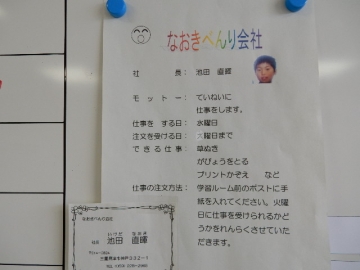 なおきべんり会社
社　　　長： 池田　直暉
モットー： ていねいに
仕事をします。
仕事を する日： 水曜日
注文を受ける日： 曜日まで
できる仕事： 草ぬき
がびょうをとる
プリントかぞえ　など
仕事の注文方法： 学習ルーム前のポストに手
紙を入れてください。火曜
日に仕事を受けられるかど
うかをれんらくさせていた
だきます。
なおきべんり会社
社長 池田 直暉